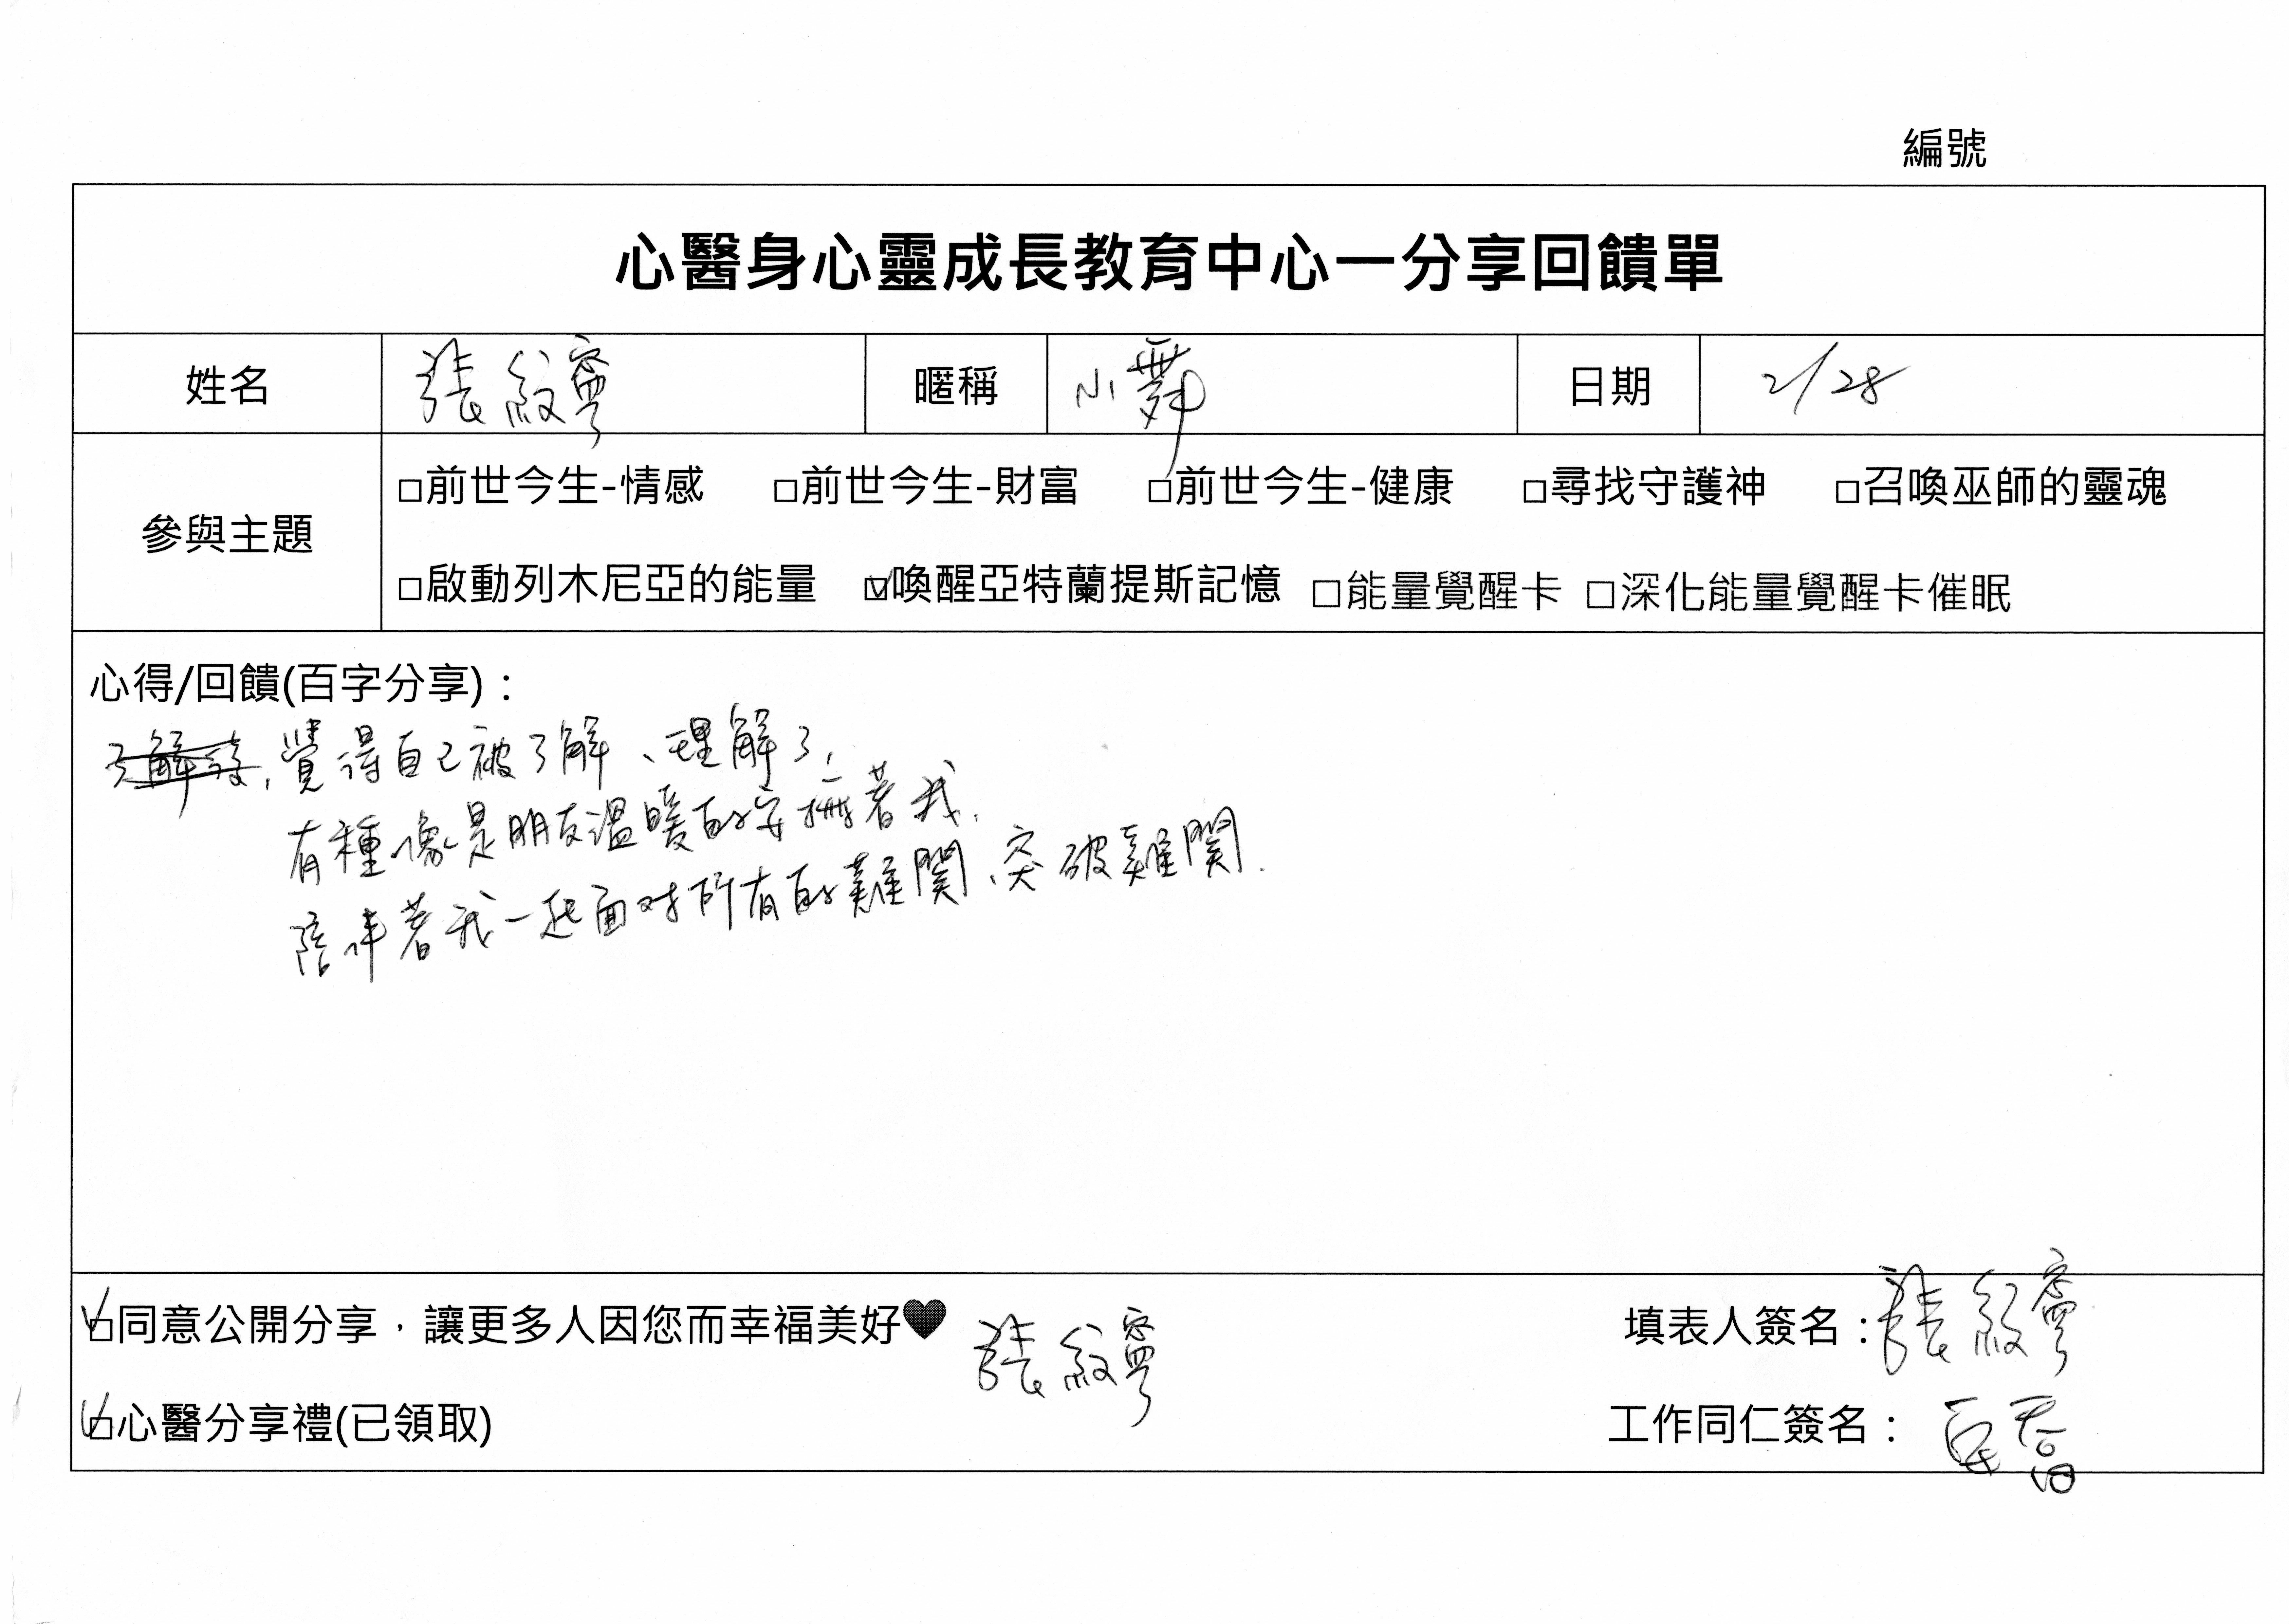 編號
心醫身心靈成長教育中心一分享回饋單
姓名 張紋寧 暱稱 小舞 日期 2/28
參與主題
□前世今生-情感 □前世今生-財富 □前世今生-健康 □尋找守護神 □召喚巫師的靈魂
□啟動列木尼亞的能量 ☑喚醒亞特蘭提斯記憶 □能量覺醒卡 □深化能量覺醒卡催眠
心得/回饋(百字分享)：
覺得自己被了解、理解了,
有種像是朋友溫暖的安撫著我.
陪伴著我一起面对所有的難關、突破難關.
☑同意公開分享，讓更多人因您而幸福美好♥ 張紋寧 填表人簽名：張紋寧
☑心醫分享禮(已領取) 工作同仁簽名：